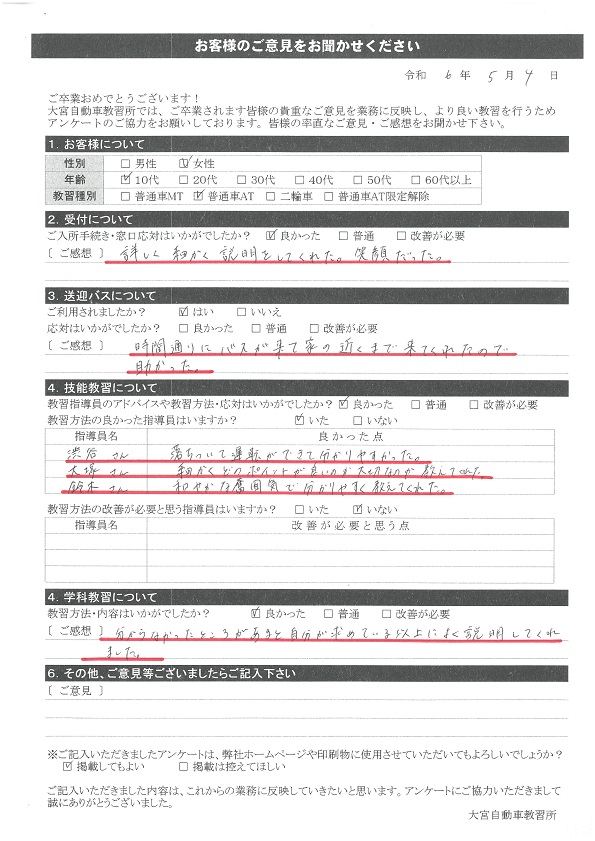 お客様のご意見をお聞かせください
令和 6 年 5 月 4 日
ご卒業おめでとうございます！
大宮自動車教習所では、ご卒業されます皆様の貴重なご意見を業務に反映し、より良い教習を行うため
アンケートのご協力をお願いしております。皆様の率直なご意見・ご感想をお聞かせ下さい。
1. お客様について
性別 □ 男性 ☑ 女性
年齢 ☑ 10代 □ 20代 □ 30代 □ 40代 □ 50代 □ 60代以上
教習種別 □ 普通車MT ☑ 普通車AT □ 二輪車 □ 普通車AT限定解除
2. 受付について
ご入所手続き・窓口応対はいかがでしたか？ ☑ 良かった □ 普通 □ 改善が必要
〔 ご感想 〕 詳しく細かく説明をしてくれた。笑顔だった。
3. 送迎バスについて
ご利用されましたか？ ☑ はい □ いいえ
応対はいかがでしたか？ □ 良かった □ 普通 □ 改善が必要
〔 ご感想 〕 時間通りにバスが来て家の近くまで来てくれたので
助かった。
4. 技能教習について
教習指導員のアドバイスや教習方法・応対はいかがでしたか？ ☑ 良かった □ 普通 □ 改善が必要
教習方法の良かった指導員はいますか？ ☑ いた □ いない
指導員名 良かった点
渋谷さん 落ちついて運転ができて分かりやすかった。
大塚さん 細かくどのポイントが良いのか大切なのか教えてくれた。
鈴木さん 和やかな雰囲気で分かりやすく教えてくれた。
教習方法の改善が必要と思う指導員はいますか？ □ いた ☑ いない
指導員名 改善が必要と思う点
4. 学科教習について
教習方法・内容はいかがでしたか？ ☑ 良かった □ 普通 □ 改善が必要
〔 ご感想 〕 分からなかったところがあると自分が求めている以上によく説明してくれ
ました。
6. その他、ご意見等ございましたらご記入下さい
〔 ご意見 〕
※ご記入いただきましたアンケートは、弊社ホームページや印刷物に使用させていただいてもよろしいでしょうか？
☑ 掲載してもよい □ 掲載は控えてほしい
ご記入いただきました内容は、これからの業務に反映していきたいと思います。アンケートにご協力いただきまして
誠にありがとうございました。
大宮自動車教習所